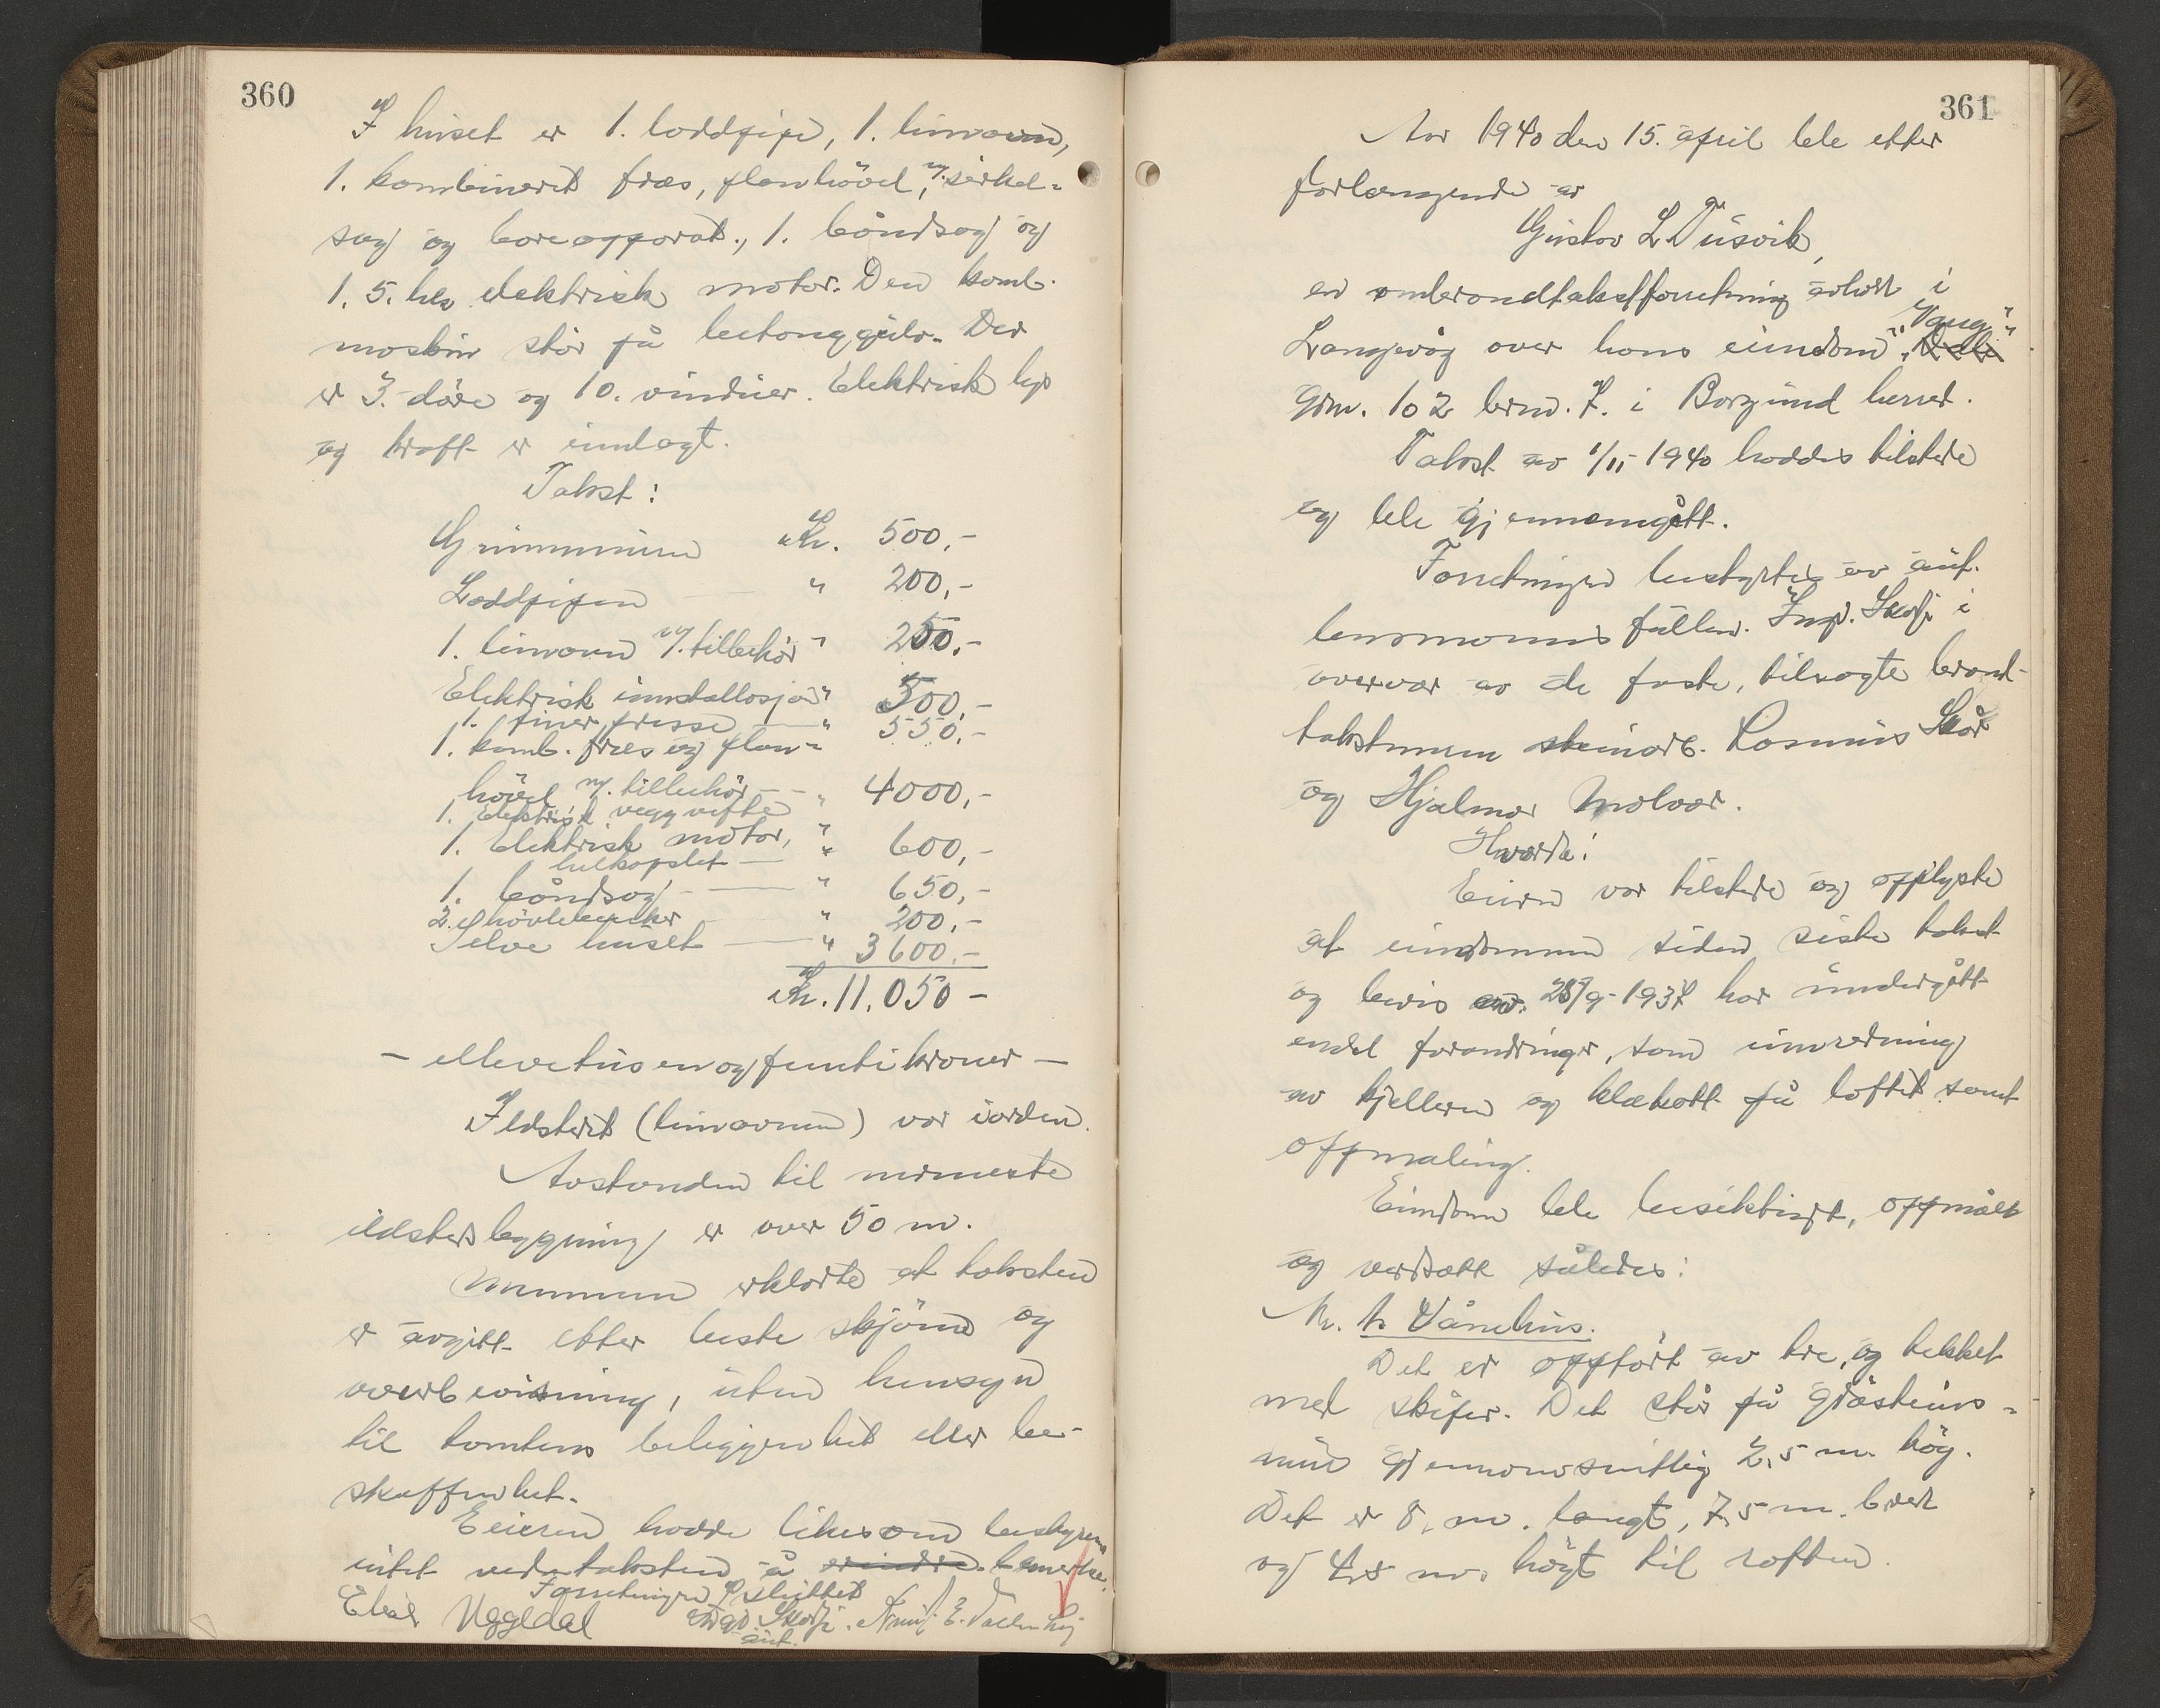 360
I huset er 1. loddpipe, 1. limovn,
1. kombinerit fræs, planhövel, m/. sirkel-
sag og boreapparat., 1. båndsag og
1. 5. hk. elektrisk motor. Den komb.
maskin står på betonggulv. Der
er 3. döre og 10. vinduer. Elektrisk lys
og kraft er innlagt.
Takst:
Grunnmuren Kr. 500,-
Loddpipen " 200,-
1. limovn m/. tilbehör " 250,-
Elektrisk installasjon " 500,-
1. finer presse " 550,-
1. komb. fræs og plan-
hövel m/. tilbehör " 4000,-
1. Elektrisk veggvifte "
1. Elektrisk motor, " 600,-
helkapslet
1. båndsag " 650,-
2. hövlebenker " 200,-
Selve huset " 3600,-
Kr. 11.050 -
- ellevetusenogfemtikroner -
Ildsteds (limovnen) var iorden.
Avstanden til nærmeste
ildstedsbygning er over 50 m.
Mennene erklærte at taksten
er avgitt etter beste skjönn og
overbevisning, uten hensyn
til tomtens beliggenhet eller be-
skaffenhet.
Eieren hadde likesom bestyreren
intet ved taksten å erindre bemerke.
Forretningen sluttet
Elias Uggedal Ingv. Skodje
aut.
361
Aar 1940 den 15. april ble etter
forlangende av
Gustav L. Tusvik,
en ombrandtakstforretning avholt i
Langevåg over hans eiendom "Vaug"
Grn. 102 brn. 7. i Borgund herred.
Takst av 1/11- 1940 haddes tilstede
og ble gjennemgått.
Forretningen bestyrtes av aut.
lensmanns fullm. Ingv. Skodje i
overvær av de faste, tilsagte brand-
takstmenn steinarb. Rasmus Skår
og Hjalmar Molvær.
Hvorda:
Eieren var tilstede og opplyste
at eiendommen siden siste takst
og bevis av. 28/9- 1937 har undergått
endel forandringer, som innredning
av kjelleren og klækott på loftet samt
oppmaling.
Eiendom ble besiktiget, oppmålt
og verdsatt således:
Nr. 1. Vånehus.
Det er oppfört av tre, og tekket
med skifer. Det står på gråsteins-
mur gjennomsnittlig 2,5 m. hög.
Det er 8. m. langt, 7,5 m. bredt
og 4,8 m. högt til raften.